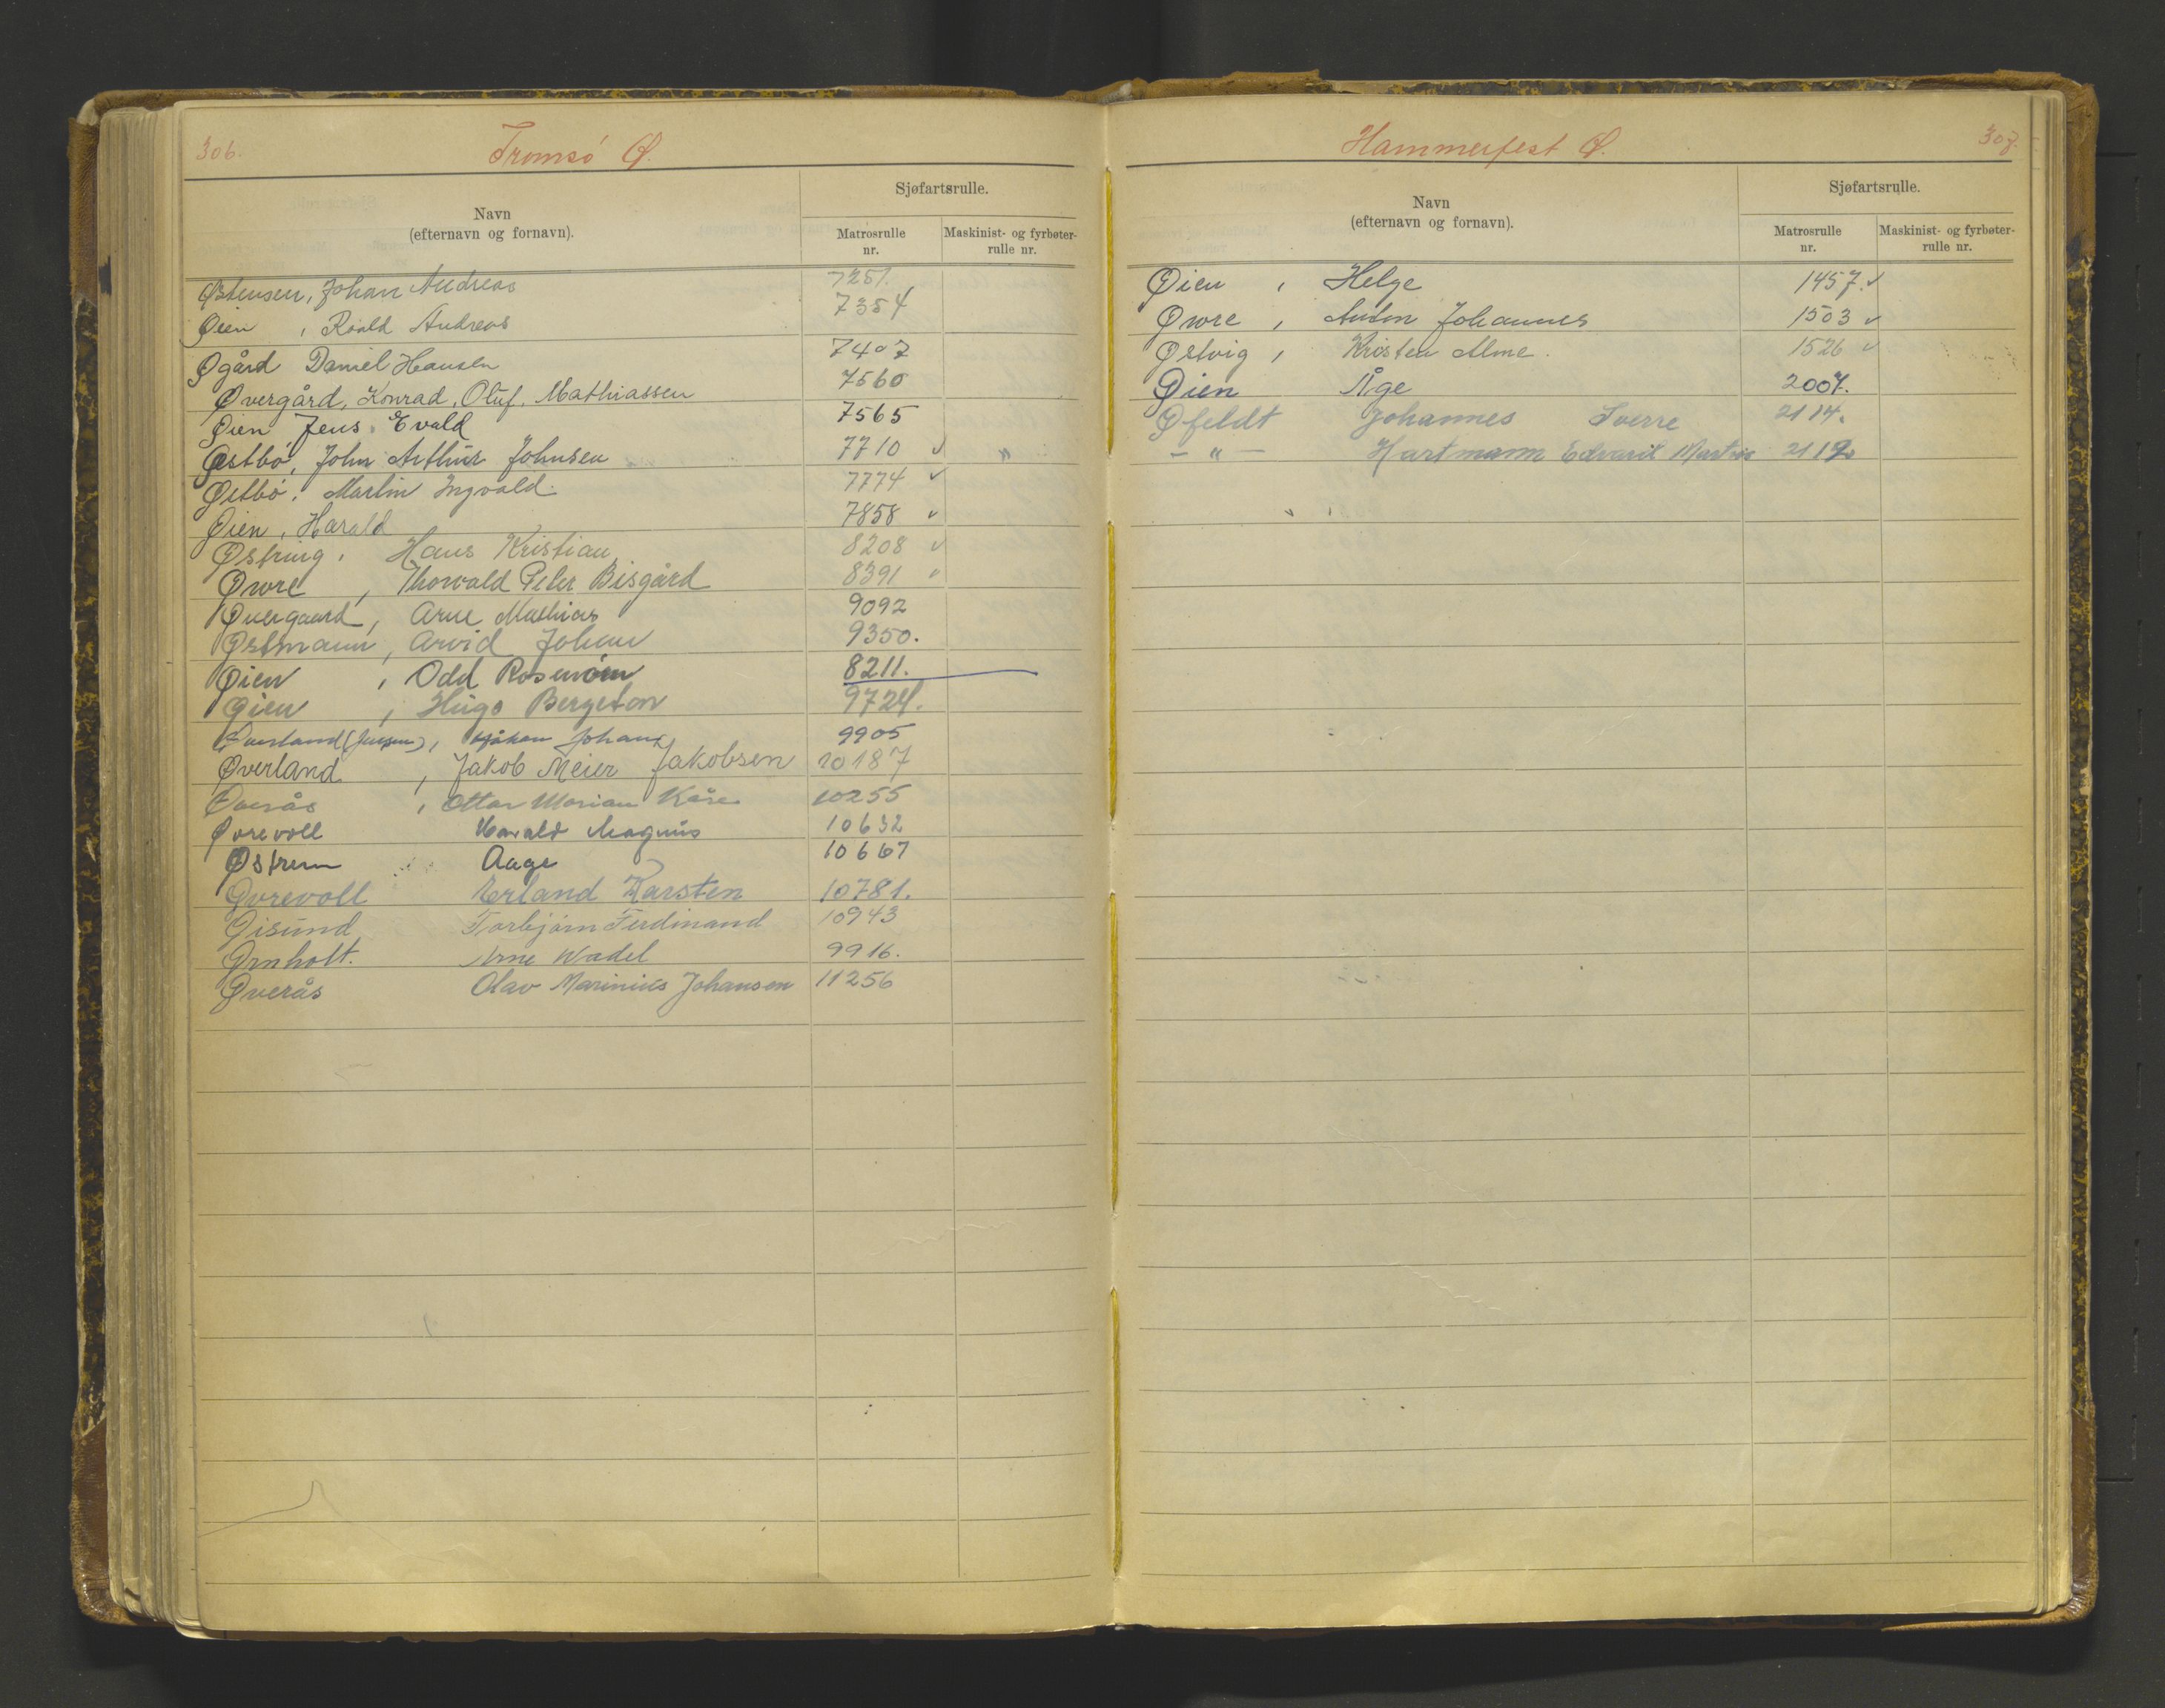 306.
Tromsø Ø.
Navn
(efternavn og fornavn).
Sjøfartsrulle.
Matrosrulle nr.
Maskinist- og fyrbøter-rulle nr.
Østensen, Johan Andreas 7251.
Øien , Roald Andreas 7354
Øgård Daniel Hansen 7407
Øvergård, Konrad, Oluf. Mathiassen 7560
Øien Jens Evald 7565
Østbø, John Arthur Johnsen 7710 ✓ "
Østbø, Martin Ingvald 7774 ✓
Øien, Harald 7858 ✓
Østring, Hans Kristian 8208 ✓
Øvre , Thorvald Peter Bisgård 8391 ✓
Øvergaard, Arne Mathias 9092
Østmann, Arvid Johan 9350.
Øien , Odd Rosenørn 8211.
Øien , Hugo Bergeton 9724.
Øverland (Jensen), Håkon Johan 9905
Øverland , Jakob Meier Jakobsen 10187
Øverås , Ottar Marian Kåre 10255
Øvrevoll Harald Magnus 10632
Østrem Aage 10667
Øvrevoll Erland Karsten 10781.
Øisund Torbjørn Ferdinand 10943
Ørnholt. Arne Wadel 9916.
Øverås Olav Marinius Johansen 11256
307.
Hammerfest Ø.
Navn
(efternavn og fornavn).
Sjøfartsrulle.
Matrosrulle nr.
Maskinist- og fyrbøter-rulle nr.
Øien , Helge 1457. ✓
Øvre , Anton Johannes 1503 ✓
Østvig , Kristen Alme. 1526 ✓
Øien Åge 2007.
Øfeldt Johannes Sverre 2114.
— " — Hartmann Edvard 2112